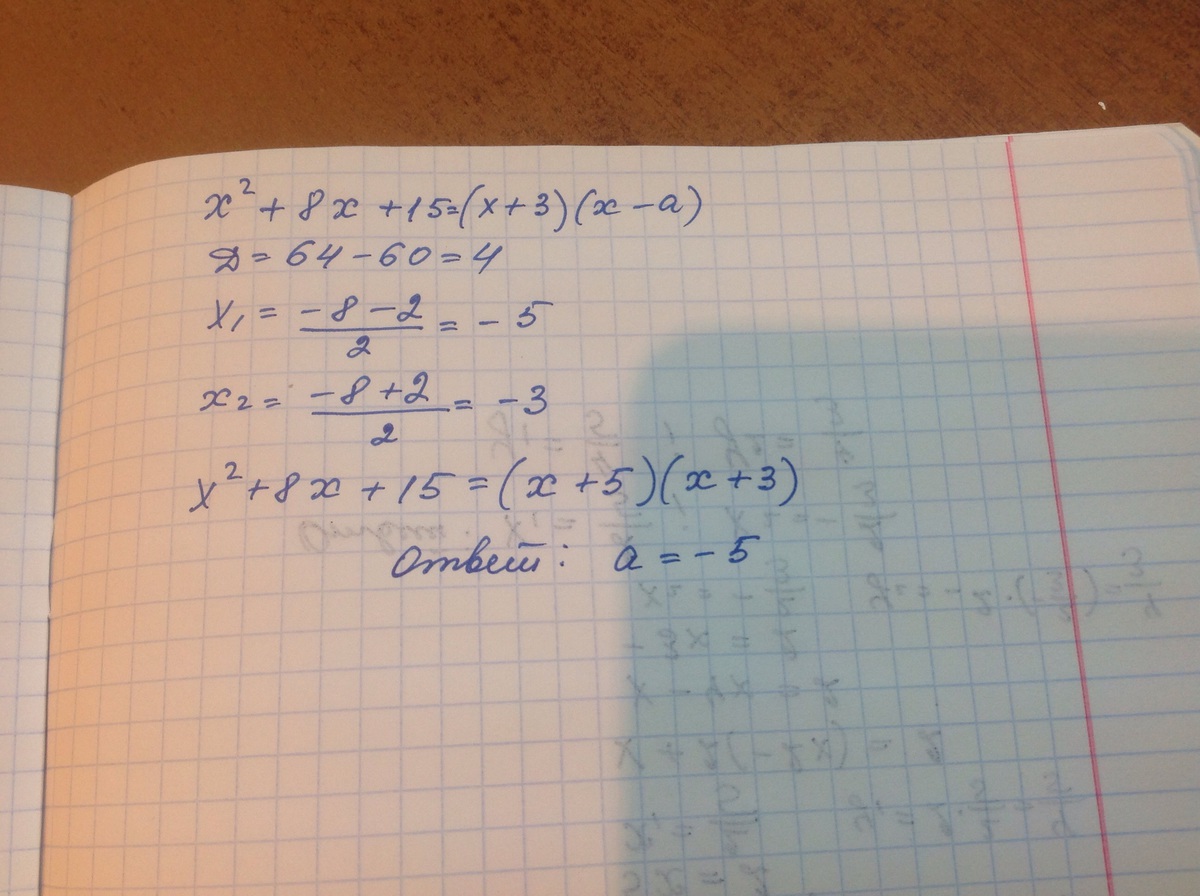 x² + 8x + 15 = (x + 3)(x - a)
D = 64 - 60 = 4
x₁ = (-8 - 2)/2 = -5
x₂ = (-8 + 2)/2 = -3
x² + 8x + 15 = (x + 5)(x + 3)
Ответ: a = -5